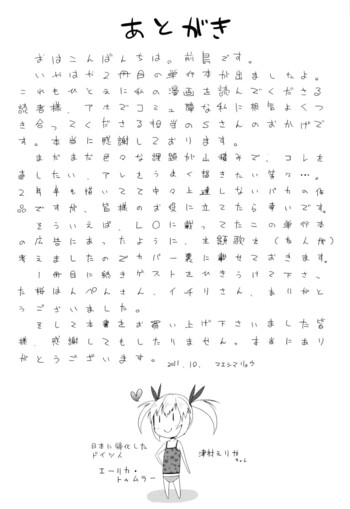 あとがき
おはこんばんちは。前島です。
いやはや2冊目の単行本が出ましたよ。
これもひとえに私の漫画を読んでくださる
読者様、アホでコミュ障な私に根気よくつ
き合ってくださる担当のSさんのおかげで
す。本当に感謝しております。
まだまだ色々な課題が山積みで、コレを
直したい、アレをうまく描きたい等々…。
2年半も描いてて中々上達しないバカの作
品ですが、皆様のお役に立てたら幸いです。
そういえば、LOに載ってたこの単行本
の広告にあったように、主題歌を
考えましたのでカバー裏に載せておきます。
1冊目に続きゲストをひきうけて下さっ
た桜はんぺんさん、イチリさん、ありがと
うございました。
そして本書をお買い上げ下さいました皆
様、感謝してもしたりません。まことにあり
がとうございます。
2011.10. マエシマリョウ
日本に帰化した
ドイツ人
エーリカ・
トゥムラー
津村えりか
ちゃん